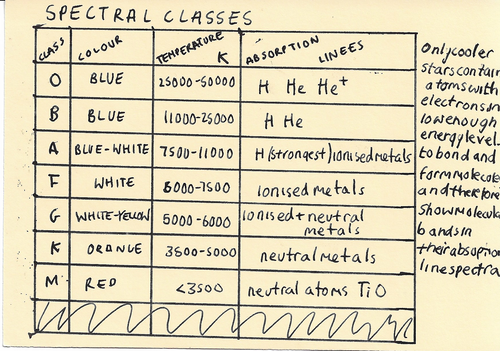 SPECTRAL CLASSES
CLASS COLOUR TEMPERATURE K ABSORPTION LINEES
O BLUE 25000-50000 H He He+
B BLUE 11000-25000 H He
A BLUE-WHITE 7500-11000 H(strongest) ionised metals
F WHITE 6000-7500 ionised metals
G WHITE-YELLOW 5000-6000 ionised+neutral
metals
K ORANGE 3500-5000 neutral metals
M RED <3500 neutral atoms TiO
Only cooler
stars contain
atoms with
electrons in
low enough
energy level
to bond and
form molecul
and therefore
show molecul
bands in
their absorptio
line spectra